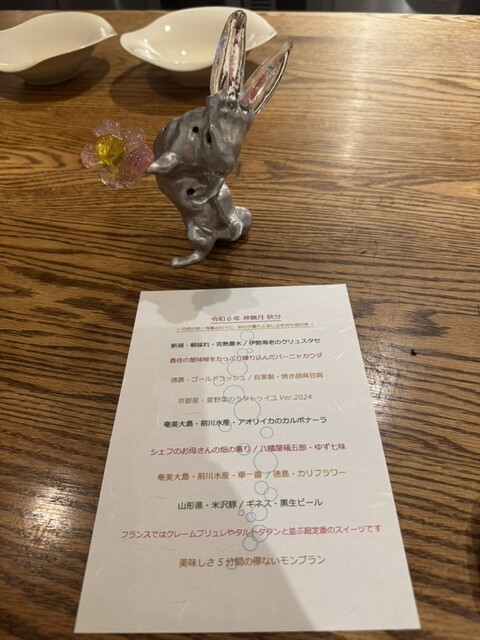 令和6年 神無月 秋分
新潟・朝採れ・完熟豊水 / 伊勢海老のクリュスタセ
香住の蟹味噌をたっぷり練り込んだバーニャカウダ
徳島・ゴールドラッシュ / 自家製・焼き胡麻豆腐
京都産・夏野菜のラタトゥイユ Ver.2024
奄美大島・前川水産・アオリイカのカルボナーラ
シェフのお母さんの畑の薫り / 八幡屋礒五郎・ゆず七味
奄美大島・前川水産・車一番 / 徳島・カリフラワー
山形県・米沢豚 / ギネス・黒生ビール
フランスではクレームブリュレやタルトタタンと並ぶ超定番のスイーツです
美味しさ5分間の儚ないモンブラン